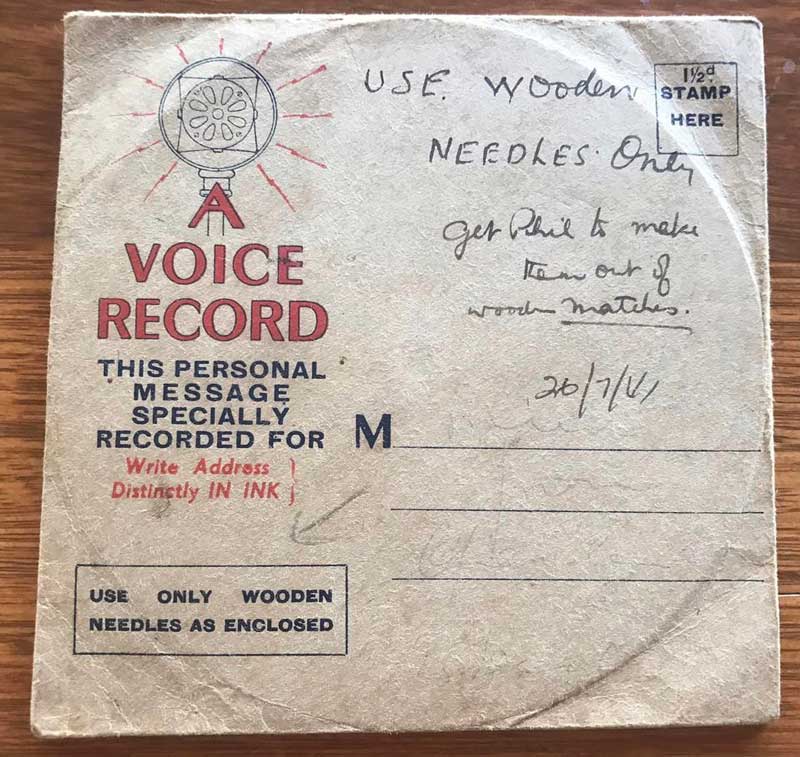 A
VOICE
RECORD
THIS PERSONAL
MESSAGE
SPECIALLY
RECORDED FOR
Write Address
Distinctly IN INK
USE ONLY WOODEN
NEEDLES AS ENCLOSED
USE. Wooden
NEEDLES. Only
1½d
STAMP
HERE
get Phil to make
them out of
wooden matches.
26/7/41
M